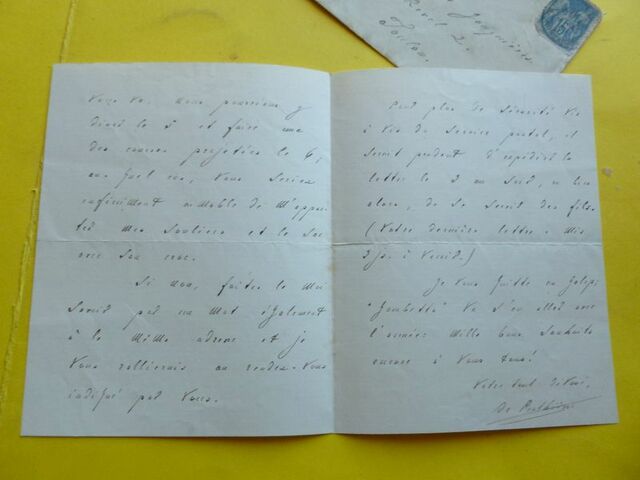 Jacquinet
Toulon
nous pourrions y
dîner le 5 et faire une
des courses projetées le 6,
en quel cas, vous seriez
infiniment aimable de m'appor-
ter mes souliers et le sac
avec son croc.
Si non, faites le moi
savoir par un mot également
à la même adresse et je
vous rallierais au rendez-vous
indiqué par vous.
Pour plus de sécurité vis
à vis du service postal, il
serait prudent d'expédier la
lettre le 3 au soir,
alors, de se servir des fils.
(Votre dernière lettre a mis
3 jrs à venir.)
Je vous quitte au galop.
"Gambetta" va s'en aller avec
l'année: mille bons souhaits
encore à vous tous!
Votre tout dévoué,